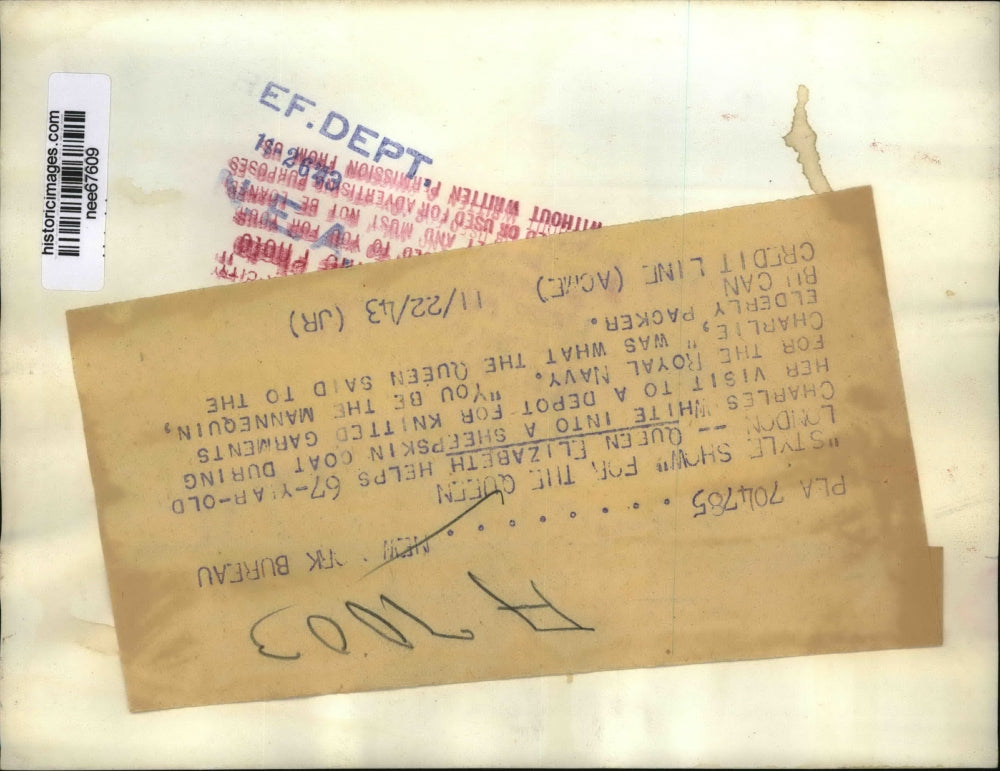 historicimages.com
nee67609
EF. DEPT.
11-26 43
WITHOUT WRITTEN PERMISSION FROM US
OR USED FOR ADVERTISING PURPOSES
AND MUST NOT BE LOANED
N.E.A.
A 7003
NEW YORK BUREAU
PLA 704785 . . . . . . . . .
"STYLE SHOW" FOR THE QUEEN
LONDON -- QUEEN ELIZABETH HELPS 67-YEAR-OLD
CHARLES WHITE INTO A SHEEPSKIN COAT DURING
HER VISIT TO A DEPOT FOR KNITTED GARMENTS
FOR THE ROYAL NAVY. "YOU BE THE MANNEQUIN,
CHARLIE," WAS WHAT THE QUEEN SAID TO THE
ELDERLY PACKER.
BU CAN
CREDIT LINE (ACME) 11/22/43 (JR)